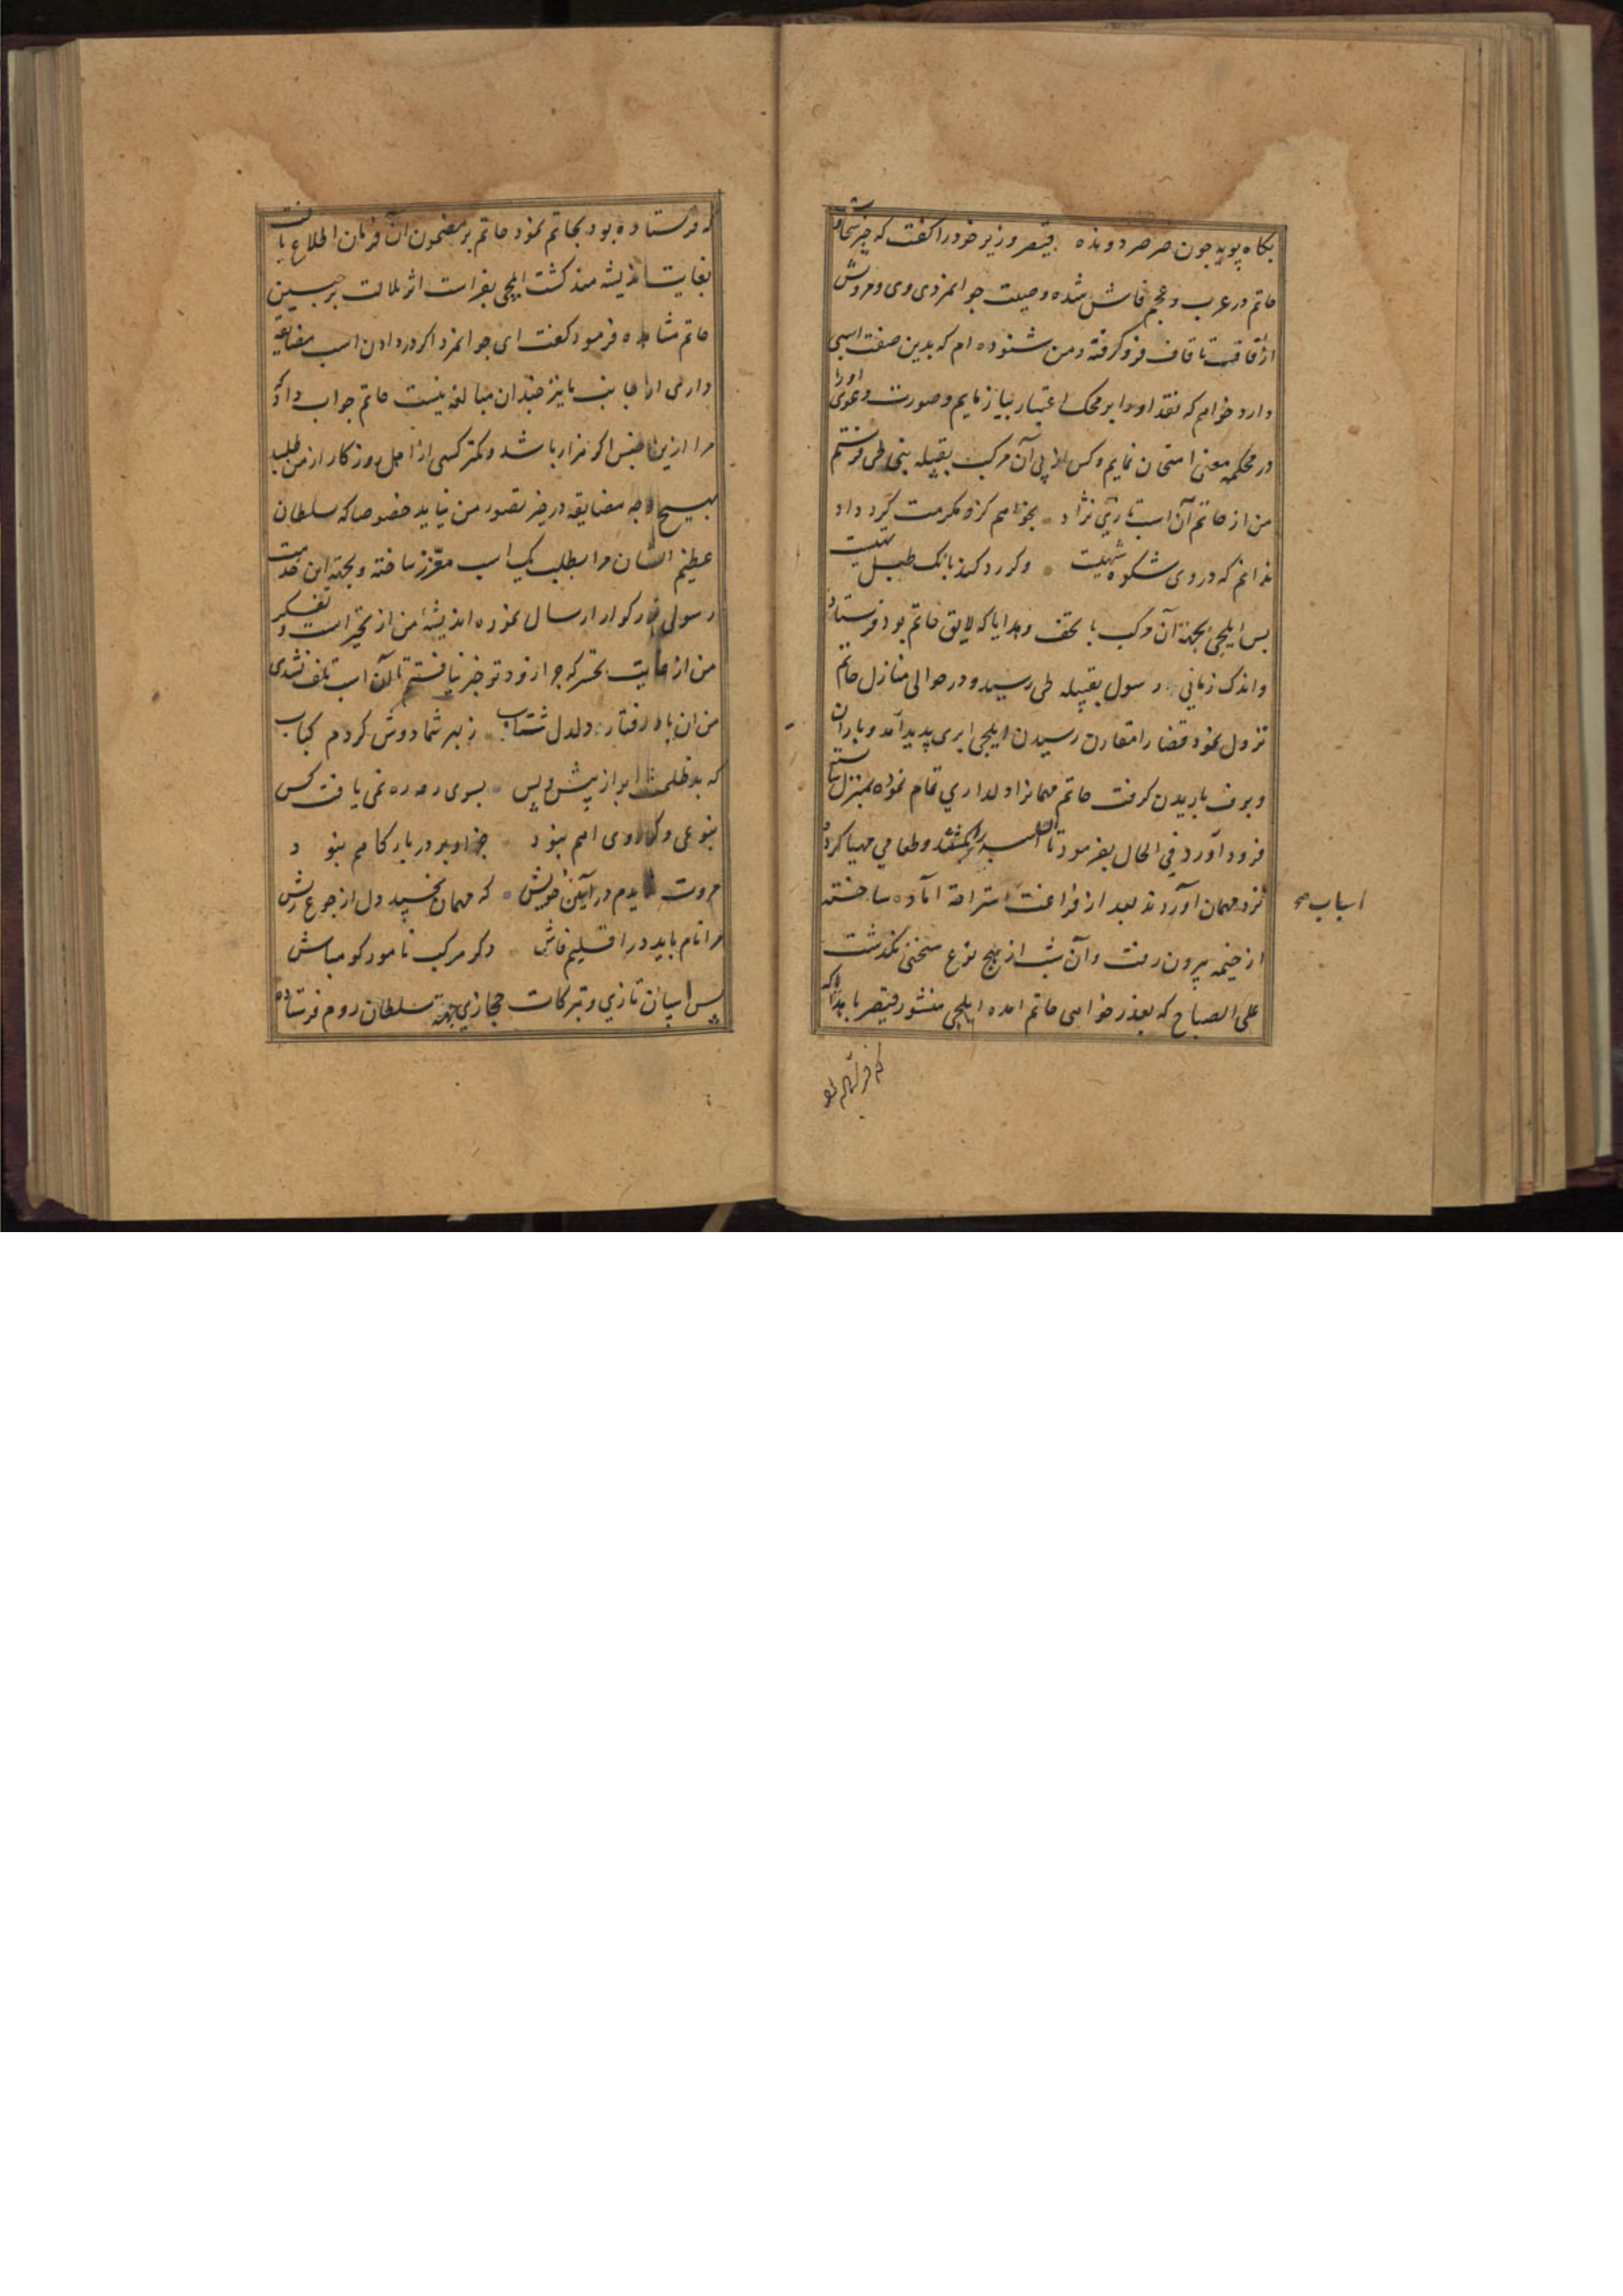 بکاه پویه جون صرصر دونده قیصر وزیر خود را کفت که خبر سخاوت
حاتم در عرب و عجم فاش شده وصیت جوانمردی وی و مروتش
از قاف تا قاف فرو کرفته و من شنوده ام که بدین صفت اسپی
دارد خواهم که نقد او را بر محک اعتبار بیازمایم وصورت دعوی او را
در محکمه معنی امتحان نمایم وکس از پی آن مرکب بقبیله بنی طی فرستم
من از حاتم آن اسب تازی نژاد بخواهم کزو مکرمت کرد و داد
بدانم که در وی شکوه مهیست وکر رد کند بانک طبل تهیست
پس ایلچی بجهة آن مرکب با تحف وهدایا که لایق حاتم بود فرستاد
واندک زمانی رسول بقبیله طی رسید و در حوالی منازل حاتم
نزول نمود قضا را مقارن رسیدن ایلچی ابری پدید آمد و باران
وبرف باریدن کرفت حاتم مهمانرا دلداری تمام نموده بمنزل
فرود آورد فی الحال بفرمود تا اسب را بکشتند وطعامی مهیا کرده
نزد مهمان آوردند بعد از فراغت استراحة آماده ساخته
اسباب صح
از خیمه بیرون رفت وآن شب از هیچ نوع سخنی نکذشت
علی الصباح که بعذر خواهی حاتم امده ایلچی منشور قیصر با هدایا که
که فرستاده بود
که فرستاده بود بحاتم نمود حاتم بر مضمون آن فرمان اطلاع یافت
بغایت اندیشه مند کشت ایلچی بفراست اثر ملالت بر جبین
حاتم مشاهده فرمود کفت ای جوانمرد اکر در دادن اسب مضایقه
داری از جانب ما نیز چندان مبالغه نیست حاتم جواب داد که
مرا ازین جنس اکر هزار باشد وکمتر کسی از اهل روزکار از من طلبد
بهیچ وجه مضایقه در حیز تصور من نیاید خصوصا که سلطان
عظیم الشان مرا بطلب یک اسب معزز ساخته و بجهة این خدمت
رسولی بزرکوار ارسال نموده اندیشهٔ من از تحیر است و تفکر
من از غایت تحسر که چرا زودتر خبر نیافتم تا آن اسب تلف نشدی
من ان باد رفتار دلدل شتاب زبهر شما دوش کردم کباب
که بد ظلمت ابر از پیش و پس بسوی رمه ره نمی یافت کس
بنوعی دکر روی اهم نبود جز او بر در بارکاهم نبود
مروت ندیدم در آیین خویش که مهمان بخسپد دل از جوع ریش
مرا نام باید در اقلیم فاش دکر مرکب نامور کو مباش
پس اسپان تازی وتبرکات حجازی بجهة سلطان روم فرستاده